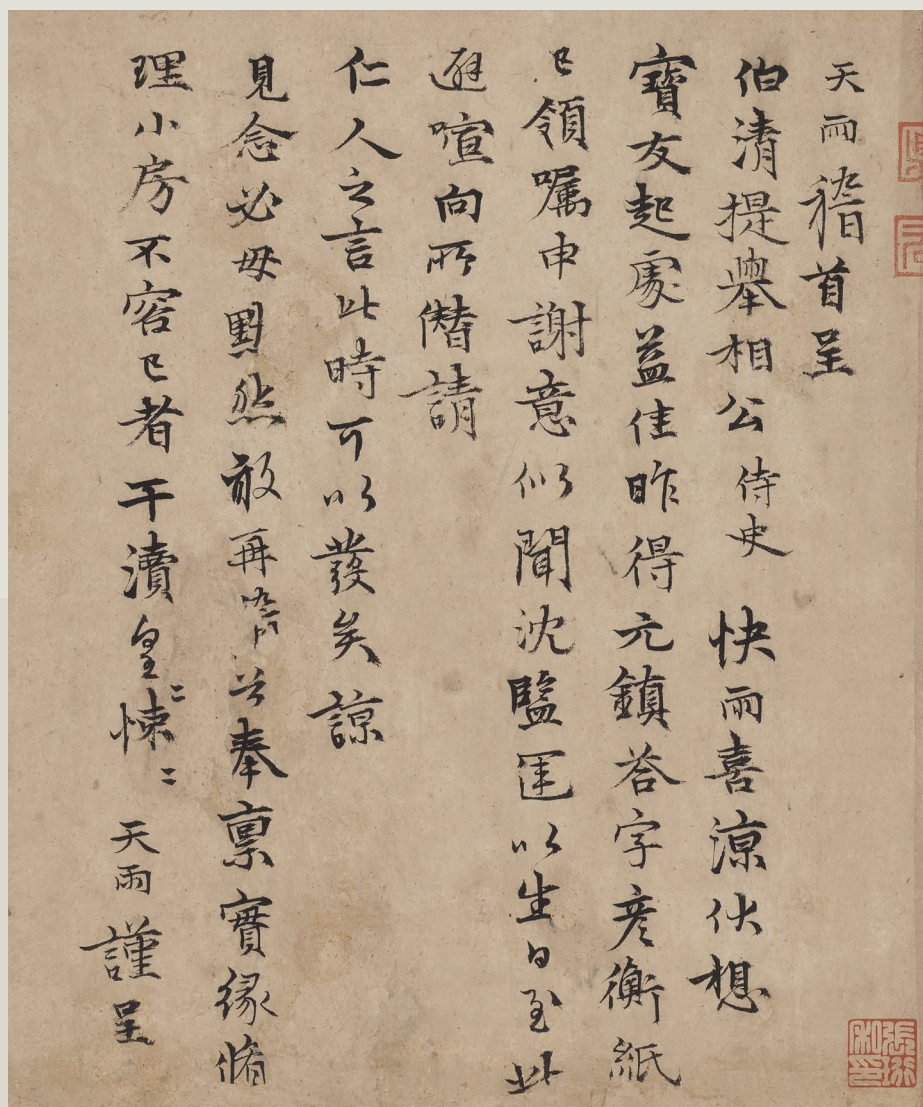 天雨稽首呈
伯清提舉相公侍史 快雨喜涼伏想
寶友起處益佳昨得元鎮荅字彥衡紙
已領囑申謝意似聞沈鹽運以生日至此
避喧向所僭請
仁人之言此時可以發矣諒
見念必毋默然敢再瞻 兹奉稟實緣脩
理小房不容已者干瀆皇〻悚〻 天雨謹呈